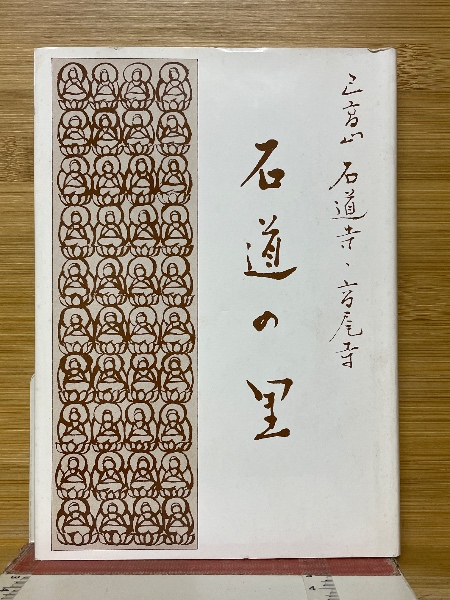 己高山 石道寺・高尾寺
石道の里